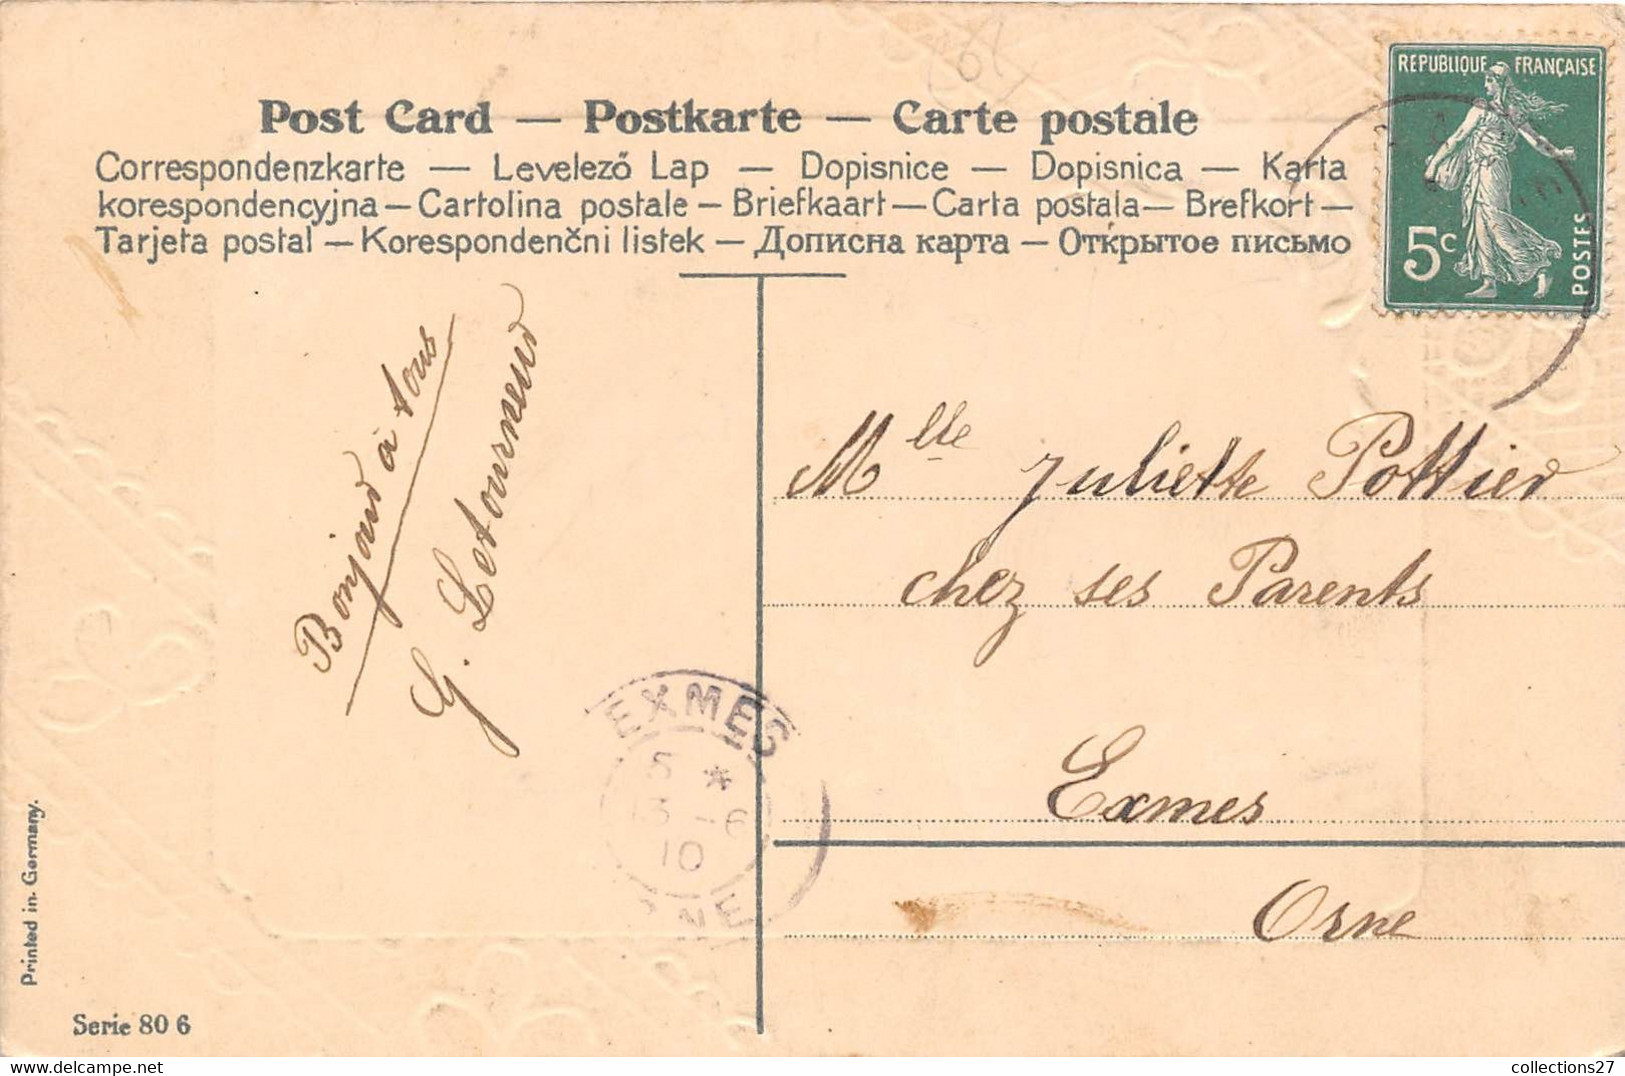 RÉPUBLIQUE FRANÇAISE
5c POSTES
Post Card — Postkarte — Carte postale
Correspondenzkarte — Levelező Lap — Dopisnice — Dopisnica — Karta
korespondencyjna — Cartolina postale — Briefkaart — Carta postala — Brefkort —
Tarjeta postal — Korespondenčni listek — Дописна карта — Открытое письмо
Bonjour à tous
G. Letourneur
Mlle Juliette Pottier
chez ses Parents
Exmes
Orne
EXMES
5 *
13 -6
10
NE
Printed in Germany.
Serie 80 6
collections27